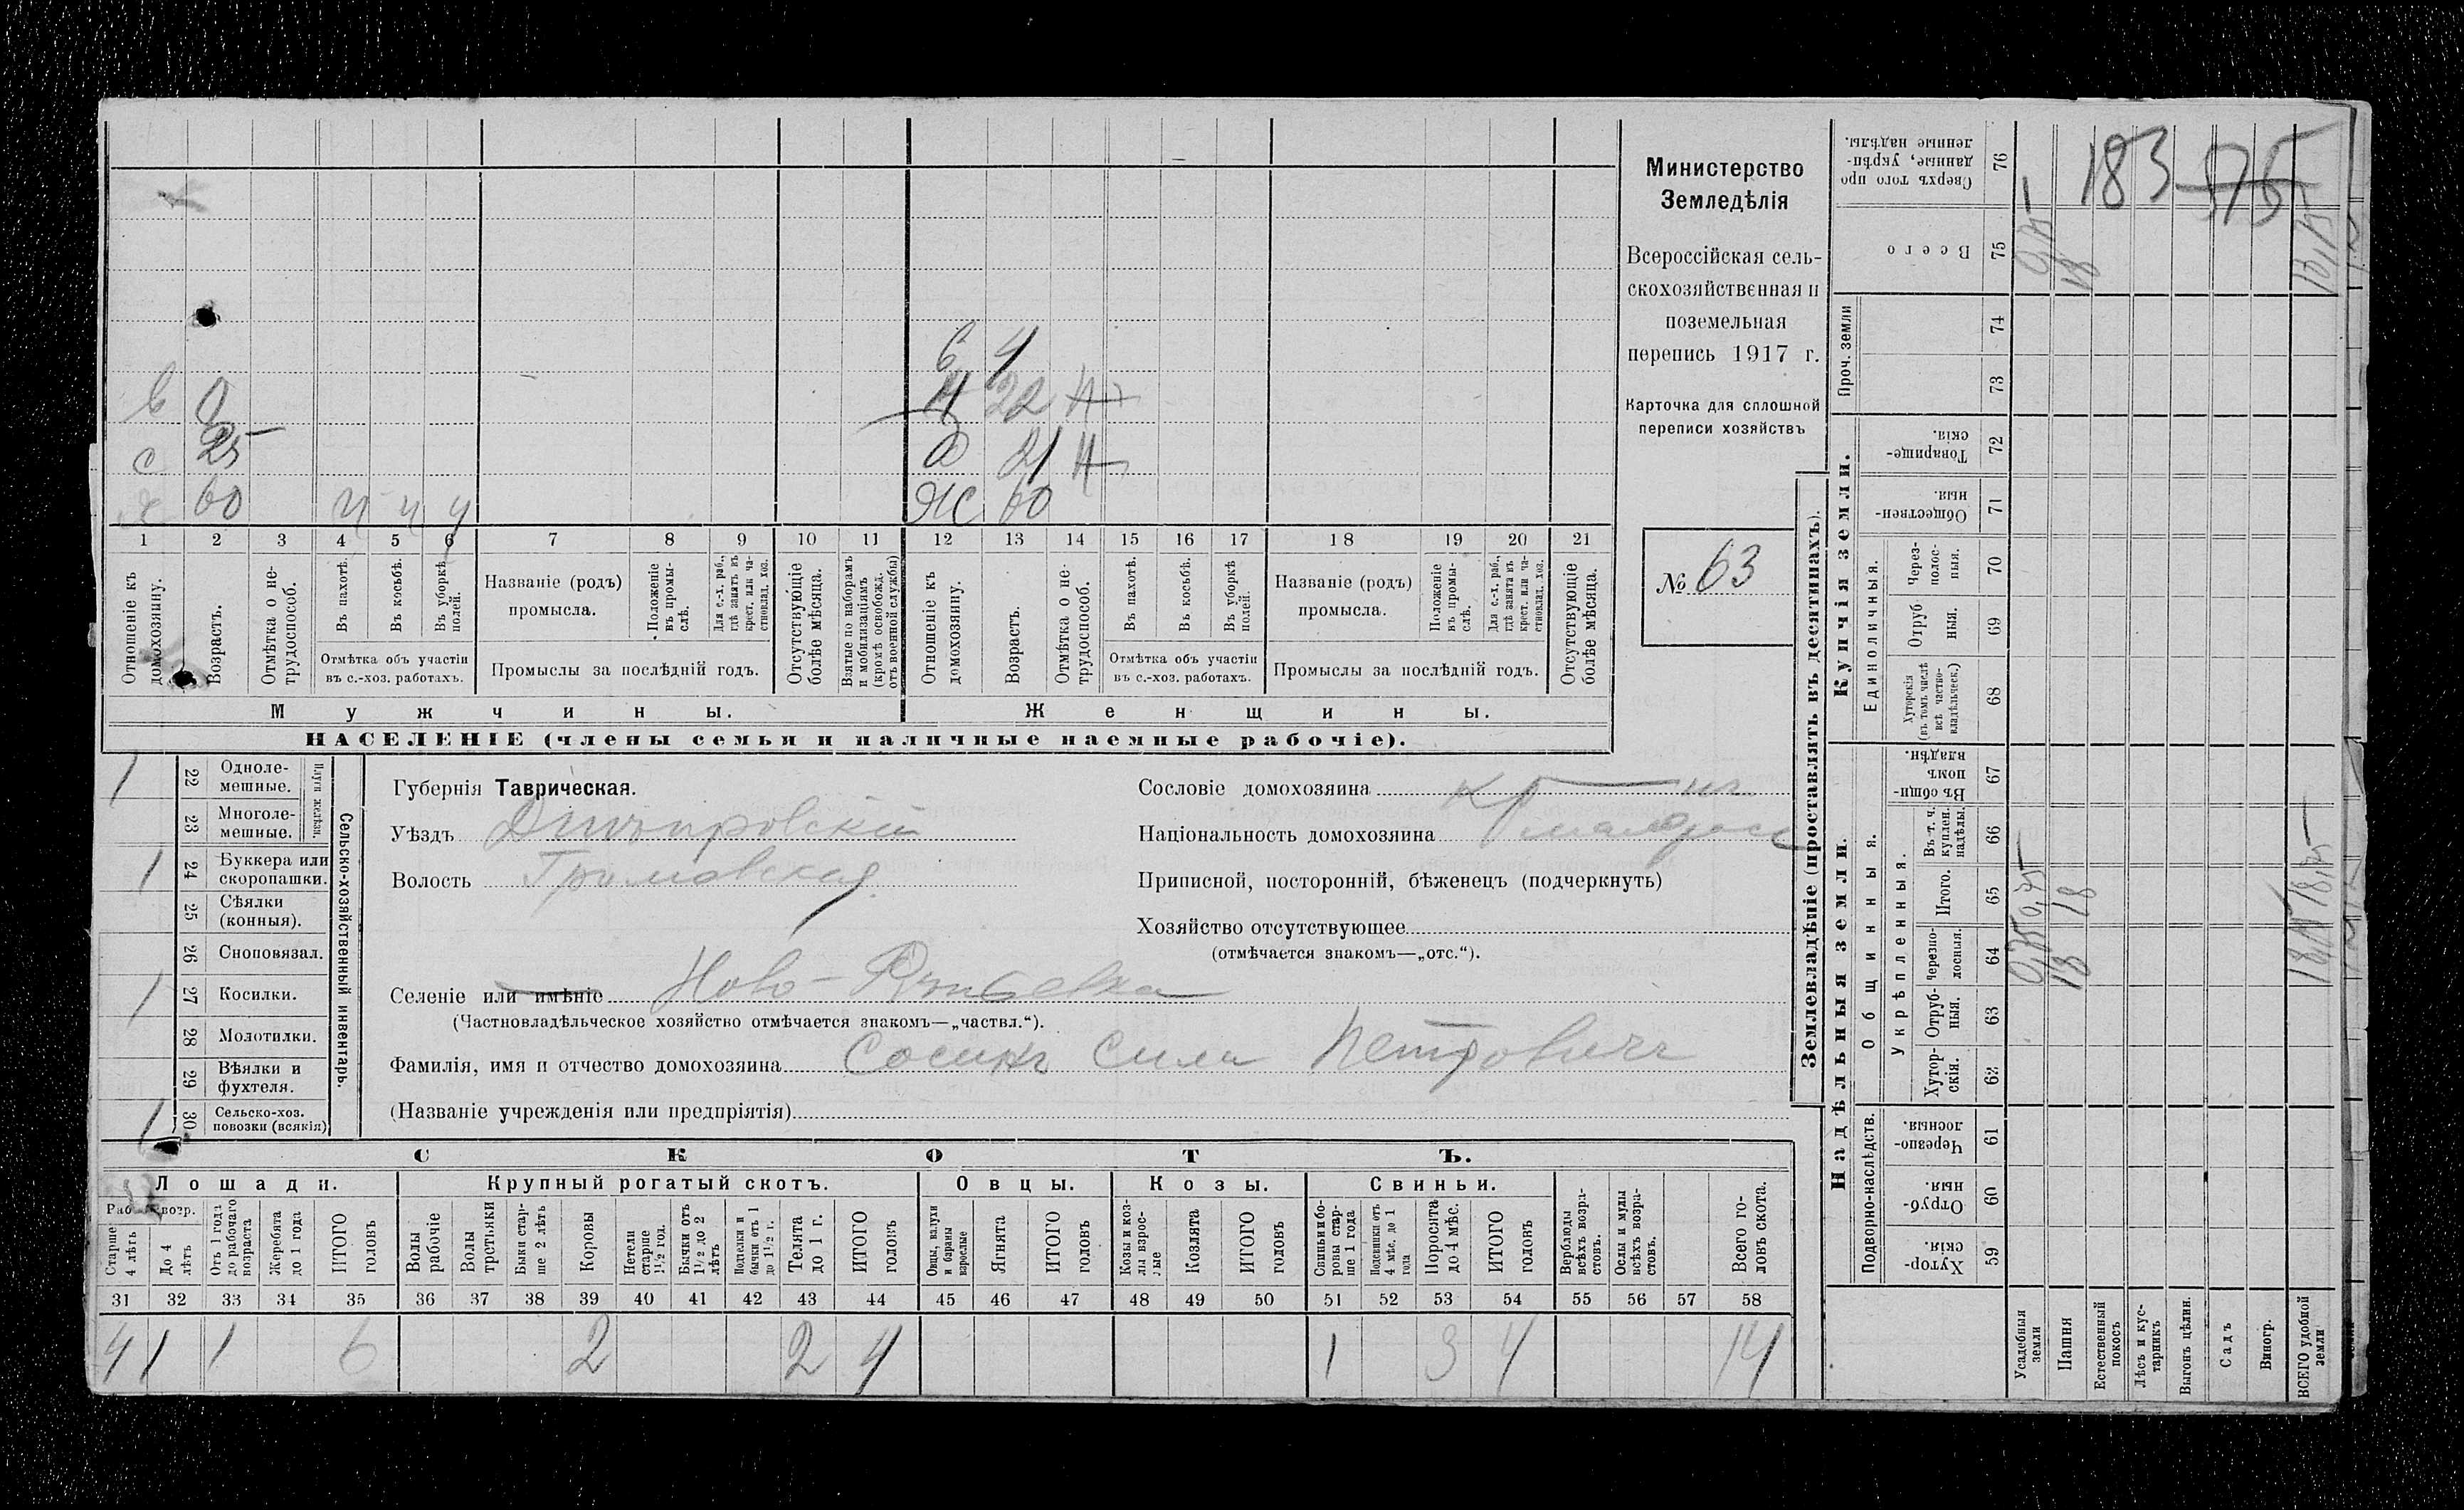 6 4
Н 22 Н
в 9
Д 21 Н
с 25
х 60 ч ч ч
Ж 60
1 2 3 4 5 6 7 8 9 10 11 12 13 14 15 16 17 18 19 20 21
Отношеніе къ домохозяину.
Возрастъ.
Отмѣтка о не-
трудоспособ.
Въ пахотѣ.
Въ косьбѣ.
Въ уборкѣ полей.
Отмѣтка объ участіи
въ с.-хоз. работахъ.
Названіе (родъ)
промысла.
Положеніе въ промы-
слѣ.
Для с.-х. раб., гдѣ занятъ въ крест. или ча-
стновлад. хоз.
Промыслы за послѣдній годъ.
Отсутствующіе болѣе мѣсяца.
Взятые по наборамъ и мобилизаціямъ (кромѣ освобожд. отъ военной службы)
Отношеніе къ домохозяину.
Возрастъ.
Отмѣтка о не-
трудоспособ.
Въ пахотѣ.
Въ косьбѣ.
Въ уборкѣ полей.
Отмѣтка объ участіи
въ с.-хоз. работахъ.
Названіе (родъ)
промысла.
Положеніе въ промы-
слѣ.
Для с.-х. раб., гдѣ занята въ крест. или ча-
стновлад. хоз.
Промыслы за послѣдній годъ.
Отсутствующіе болѣе мѣсяца.
Мужчины.
Женщины.
НАСЕЛЕНІЕ (члены семьи и наличные наемные рабочіе).
Министерство
Земледѣлія
Всероссійская сель-
скохозяйственная и
поземельная
перепись 1917 г.
Карточка для сплошной
переписи хозяйствъ
№ 63
1 22 Одноле-
мешные.
23 Многоле-
мешные.
Плуги желѣзн.
1 24 Буккера или
скоропашки.
25 Сѣялки
(конныя).
26 Сноповязал.
1 27 Косилки.
28 Молотилки.
29 Вѣялки и
фухтеля.
1 30 Сельско-хоз.
повозки (всякія)
Сельско-хозяйственный инвентарь.
Губернія Таврическая.
Уѣздъ Днѣпровскій
Волость Громовская
Селеніе или имѣніе Ново-
(Частновладѣльческое хозяйство отмѣчается знакомъ—„частвл.“).
Фамилія, имя и отчество домохозяина Сосинъ Сила Петровичъ
(Названіе учрежденія или предпріятія)
Сословіе домохозяина кр-нъ
Національность домохозяина малоросс
Приписной, посторонній, бѣженецъ (подчеркнуть)
Хозяйство отсутствующее
(отмѣчается знакомъ—„отс.“).
СКОТЪ.
Лошади. Крупный рогатый скотъ. Овцы. Козы. Свиньи.
Раб. возр.
Старше 4 лѣтъ
До 4 лѣтъ
Отъ 1 года до рабочаго возраста
Жеребята до 1 года
ИТОГО головъ
Волы рабочіе
Волы третьяки
Быки стар-
ше 2 лѣтъ
Коровы
Нетели старше 1½ год.
Бычки отъ 1½ до 2 лѣтъ
Подтелки и бычки отъ 1 до 1½ г.
Телята до 1 г.
ИТОГО головъ
Овцы, валухи и бараны взрослые
Ягнята
ИТОГО головъ
Козы и коз-
лы взрос-
лые
Козлята
ИТОГО головъ
Свиньи и бо-
ровы стар-
ше 1 года
Подсвинки отъ 4 мѣс. до 1 года
Поросята до 4 мѣс.
ИТОГО головъ
Верблюды всѣхъ возра-
стовъ.
Ослы и мулы всѣхъ возра-
стовъ.
Всего го-
ловъ скота.
31 32 33 34 35 36 37 38 39 40 41 42 43 44 45 46 47 48 49 50 51 52 53 54 55 56 57 58
4 1 1 6 2 2 4 1 3 4 14
Землевладѣніе (проставлять въ десятинахъ).
183 575
Сверхъ того про
данные, укрѣп-
ленные надѣлы.
76
Всего 75
0,75 18 18,75
Проч. земли
74
73
Купчія земли.
Товарище-
скія. 72
Обществен-
ныя. 71
Единоличныя.
Через-
полос-
ныя. 70
Отруб
ныя. 69
Хуторскія
(въ томъ числѣ
всѣ частно-
владѣльческ.) 68
Надѣльныя земли.
Общинныя.
Въ общи-
помъ
владѣн. 67
Укрѣпленныя.
Въ т. ч.
куплен.
надѣлы. 66
Итого. 65
0,75 18 18,75
Черезпо-
лосныя. 64
0,75 18 18,75
Отруб-
ныя. 63
Хутор-
скія. 62
Подворно-наслѣдств.
Черезпо-
лосныя. 61
Отруб-
ныя. 60
Хутор-
скія. 59
Усадебныя земли
Пашня
Естественный покосъ
Лѣсъ и кус-
тарникъ
Выгонъ цѣлин.
Садъ
Виногр.
ВСЕГО удобной земли